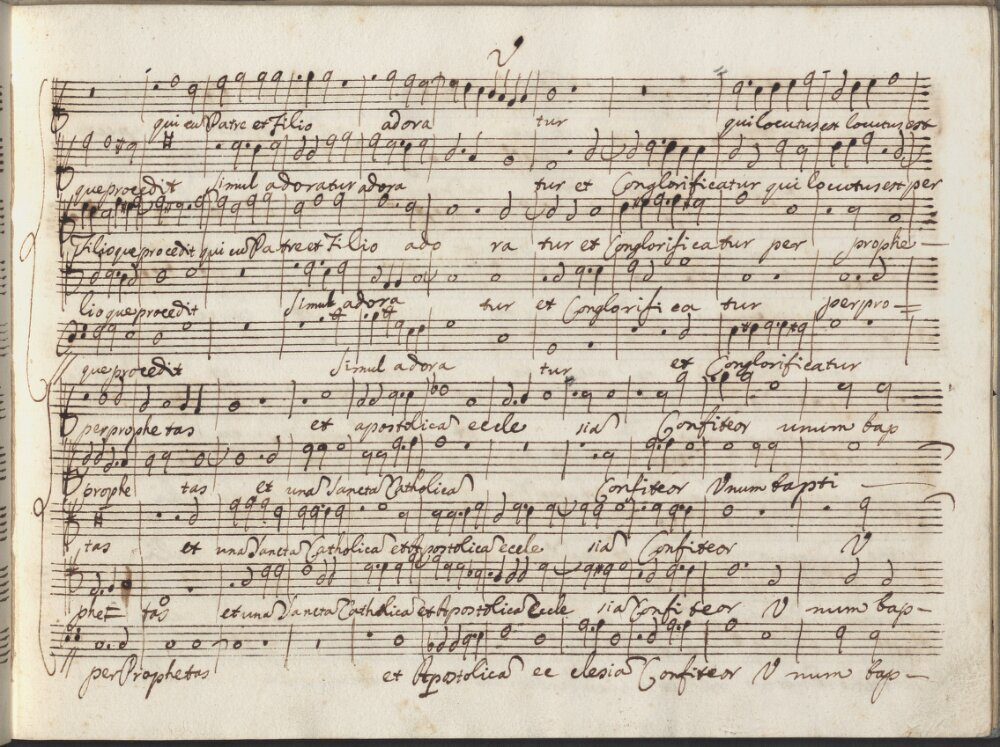 qui cu Patre et Filio adora tur qui locutus est locutus est
que procedit simul adoratur adora tur et Conglorificatur qui locutus est per
Filioque procedit qui cu Patre et Filio ado ra tur et Conglorificatur per prophe
lio que procedit Simul adora tur et Conglorifi ca tur per pro
que procedit Simul adora tur et Conglorificatur
per prophetas et apostolica eccle sia Confiteor unum bap
prophe tas et una Sancta Catholica Confiteor Unum bapti
tas et una Sancta Catholica et Apostolica eccle sia Confiteor V
phe tas et una Sancta Catholica et Apostolica Eccle sia Confi teor V num bap
per Prophetas et Apostolica ec clesia Confiteor V num bap